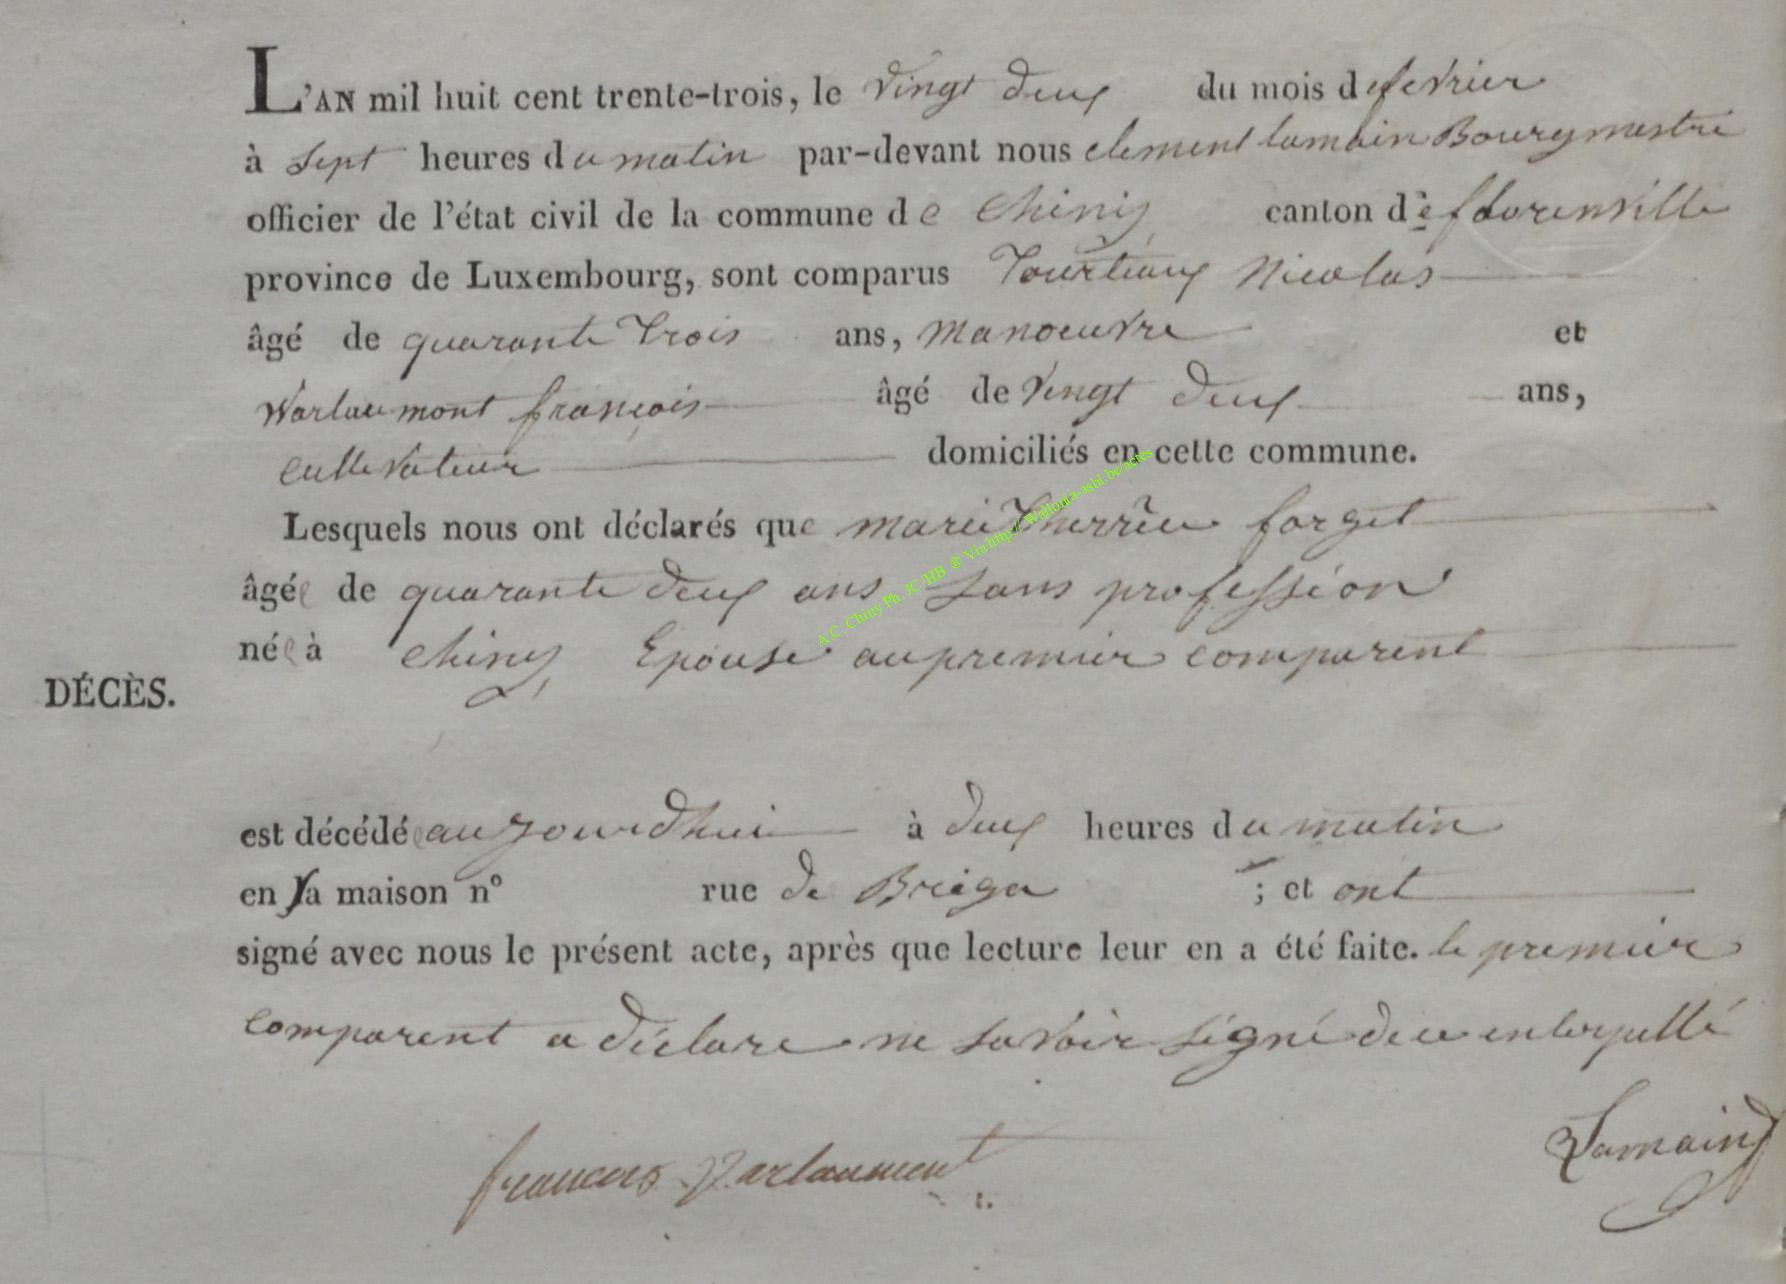 L'AN mil huit cent trente-trois, le vingt deux du mois de fevrier
à sept heures du matin par-devant nous clement lamain Bourgmestre
officier de l'état civil de la commune de Chiny canton de florenville
province de Luxembourg, sont comparus Tourtiaux Nicolas
âgé de quarante trois ans, manoeuvre et
Warlaumont françois âgé de vingt deux ans,
cultivateur domiciliés en cette commune.
Lesquels nous ont déclarés que marie forget
âgée de quarante deux ans sans profession
née à chiny Epouse au premier comparent
DÉCÈS.
est décédée aujourdhui à deux heures du matin
en sa maison n° rue de ; et ont
signé avec nous le présent acte, après que lecture leur en a été faite. le premier
comparent a déclare ne savoir signé de ce enterpellé
francois Warlaumont
Lamain
A.C. Chiny Ph. JC HB @ Via http:// Wallonia-asbl.be/actes